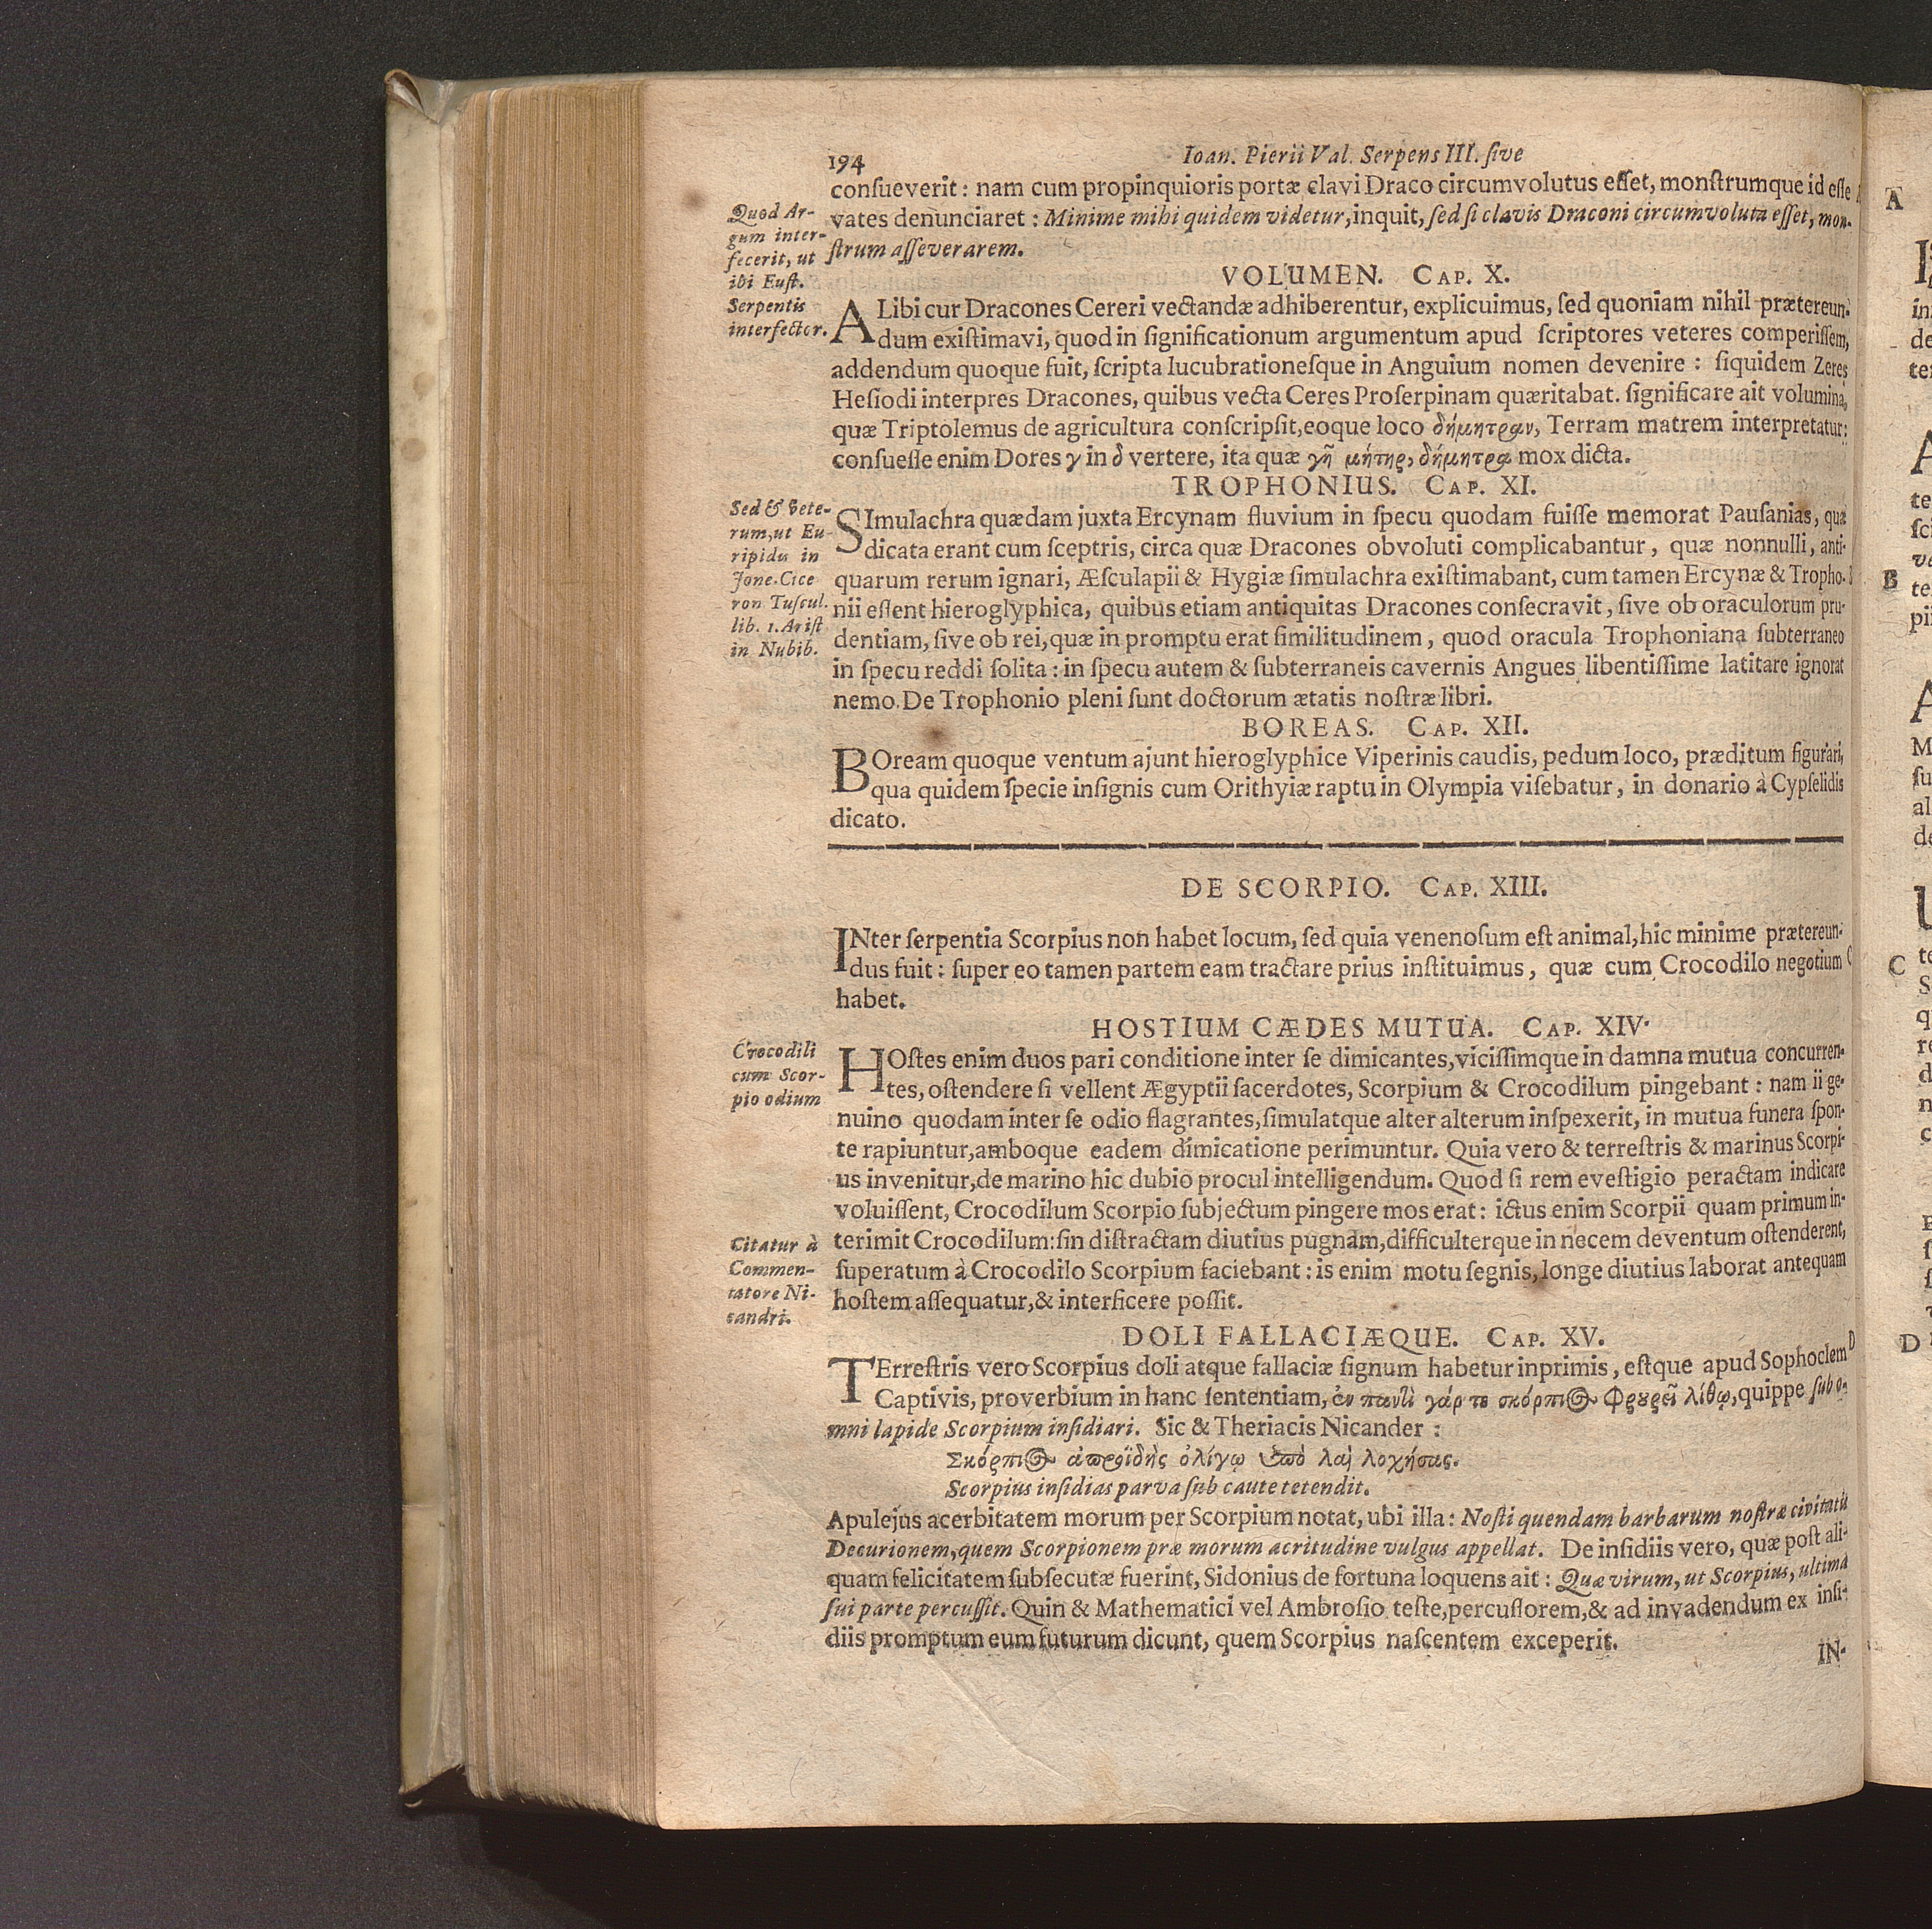 194
Ioan. Pierii Val. Serpens III. sive
consueverit: nam cum propinquioris portæ clavi Draco circumvolutus esset, monstrumque id esse
vates denunciaret: Minime mihi quidem videtur, inquit, sed si clavis Draconi circumvoluta esset, mon-
strum asseverarem.
Quod Ar-
gum inter-
fecerit, ut
ibi Eust.
Serpentis
interfector.
VOLUMEN. CAP. X.
ALibi cur Dracones Cereri vectandæ adhiberentur, explicuimus, sed quoniam nihil prætereun-
dum existimavi, quod in significationum argumentum apud scriptores veteres comperissem,
addendum quoque fuit, scripta lucubrationesque in Anguium nomen devenire: siquidem Zeres
Hesiodi interpres Dracones, quibus vecta Ceres Proserpinam quæritabat. significare ait volumina,
quæ Triptolemus de agricultura conscripsit, eoque loco δήμητραν, Terram matrem interpretatur:
consuesse enim Dores γ in δ vertere, ita quæ γῆ μήτηρ, δήμητρα mox dicta.
TROPHONIUS. CAP. XI.
Sed & vete-
rum, ut Eu-
ripidis in
Jone. Cice
ron Tuscul.
lib. 1. Arist
in Nubib.
SImulachra quædam juxta Ercynam fluvium in specu quodam fuisse memorat Pausanias, quæ
dicata erant cum sceptris, circa quæ Dracones obvoluti complicabantur, quæ nonnulli, anti-
quarum rerum ignari, Æsculapii & Hygiæ simulachra existimabant, cum tamen Ercynæ & Tropho-
nii essent hieroglyphica, quibus etiam antiquitas Dracones consecravit, sive ob oraculorum pru-
dentiam, sive ob rei, quæ in promptu erat similitudinem, quod oracula Trophoniana subterraneo
in specu reddi solita: in specu autem & subterraneis cavernis Angues libentissime latitare ignorat
nemo. De Trophonio pleni sunt doctorum ætatis nostræ libri.
BOREAS. CAP. XII.
BOream quoque ventum ajunt hieroglyphice Viperinis caudis, pedum loco, præditum figurari,
qua quidem specie insignis cum Orithyiæ raptu in Olympia visebatur, in donario à Cypselidis
dicato.
DE SCORPIO. CAP. XIII.
INter serpentia Scorpius non habet locum, sed quia venenosum est animal, hic minime prætereun-
dus fuit: super eo tamen partem eam tractare prius instituimus, quæ cum Crocodilo negotium
habet.
HOSTIUM CÆDES MUTUA. CAP. XIV.
Crocodili
cum Scor-
pio odium
HOstes enim duos pari conditione inter se dimicantes, vicissimque in damna mutua concurren-
tes, ostendere si vellent Ægyptii sacerdotes, Scorpium & Crocodilum pingebant: nam ii ge-
nuino quodam inter se odio flagrantes, simulatque alter alterum inspexerit, in mutua funera spon-
te rapiuntur, amboque eadem dimicatione perimuntur. Quia vero & terrestris & marinus Scorpi-
us invenitur, de marino hic dubio procul intelligendum. Quod si rem evestigio peractam indicare
voluissent, Crocodilum Scorpio subjectum pingere mos erat: ictus enim Scorpii quam primum in-
terimit Crocodilum: sin distractam diutius pugnam, difficulterque in necem deventum ostenderent,
superatum à Crocodilo Scorpium faciebant: is enim motu segnis, longe diutius laborat antequam
hostem assequatur, & interficere possit.
Citatur à
Commen-
tatore Ni-
candri.
DOLI FALLACIÆQUE. CAP. XV.
TErrestris vero Scorpius doli atque fallaciæ signum habetur inprimis, estque apud Sophoclem
Captivis, proverbium in hanc sententiam, ἐν παντὶ γάρ τοι σκόρπιος φρουρεῖ λίθῳ, quippe sub o-
mni lapide Scorpium insidiari. Sic & Theriacis Nicander:
Σκόρπιος ἀπροϊδὴς ὀλίγῳ ὑπὸ λαῒ λοχήσας.
Scorpius insidias parva sub caute tetendit.
Apulejus acerbitatem morum per Scorpium notat, ubi illa: Nosti quendam barbarum nostræ civitatis
Decurionem, quem Scorpionem præ morum acritudine vulgus appellat. De insidiis vero, quæ post ali-
quam felicitatem subsecutæ fuerint, Sidonius de fortuna loquens ait: Quæ virum, ut Scorpius, ultima
sui parte percussit. Quin & Mathematici vel Ambrosio teste, percussorem, & ad invadendum ex insi-
diis promptum eum futurum dicunt, quem Scorpius nascentem exceperit.
IN-
A
B
C
D